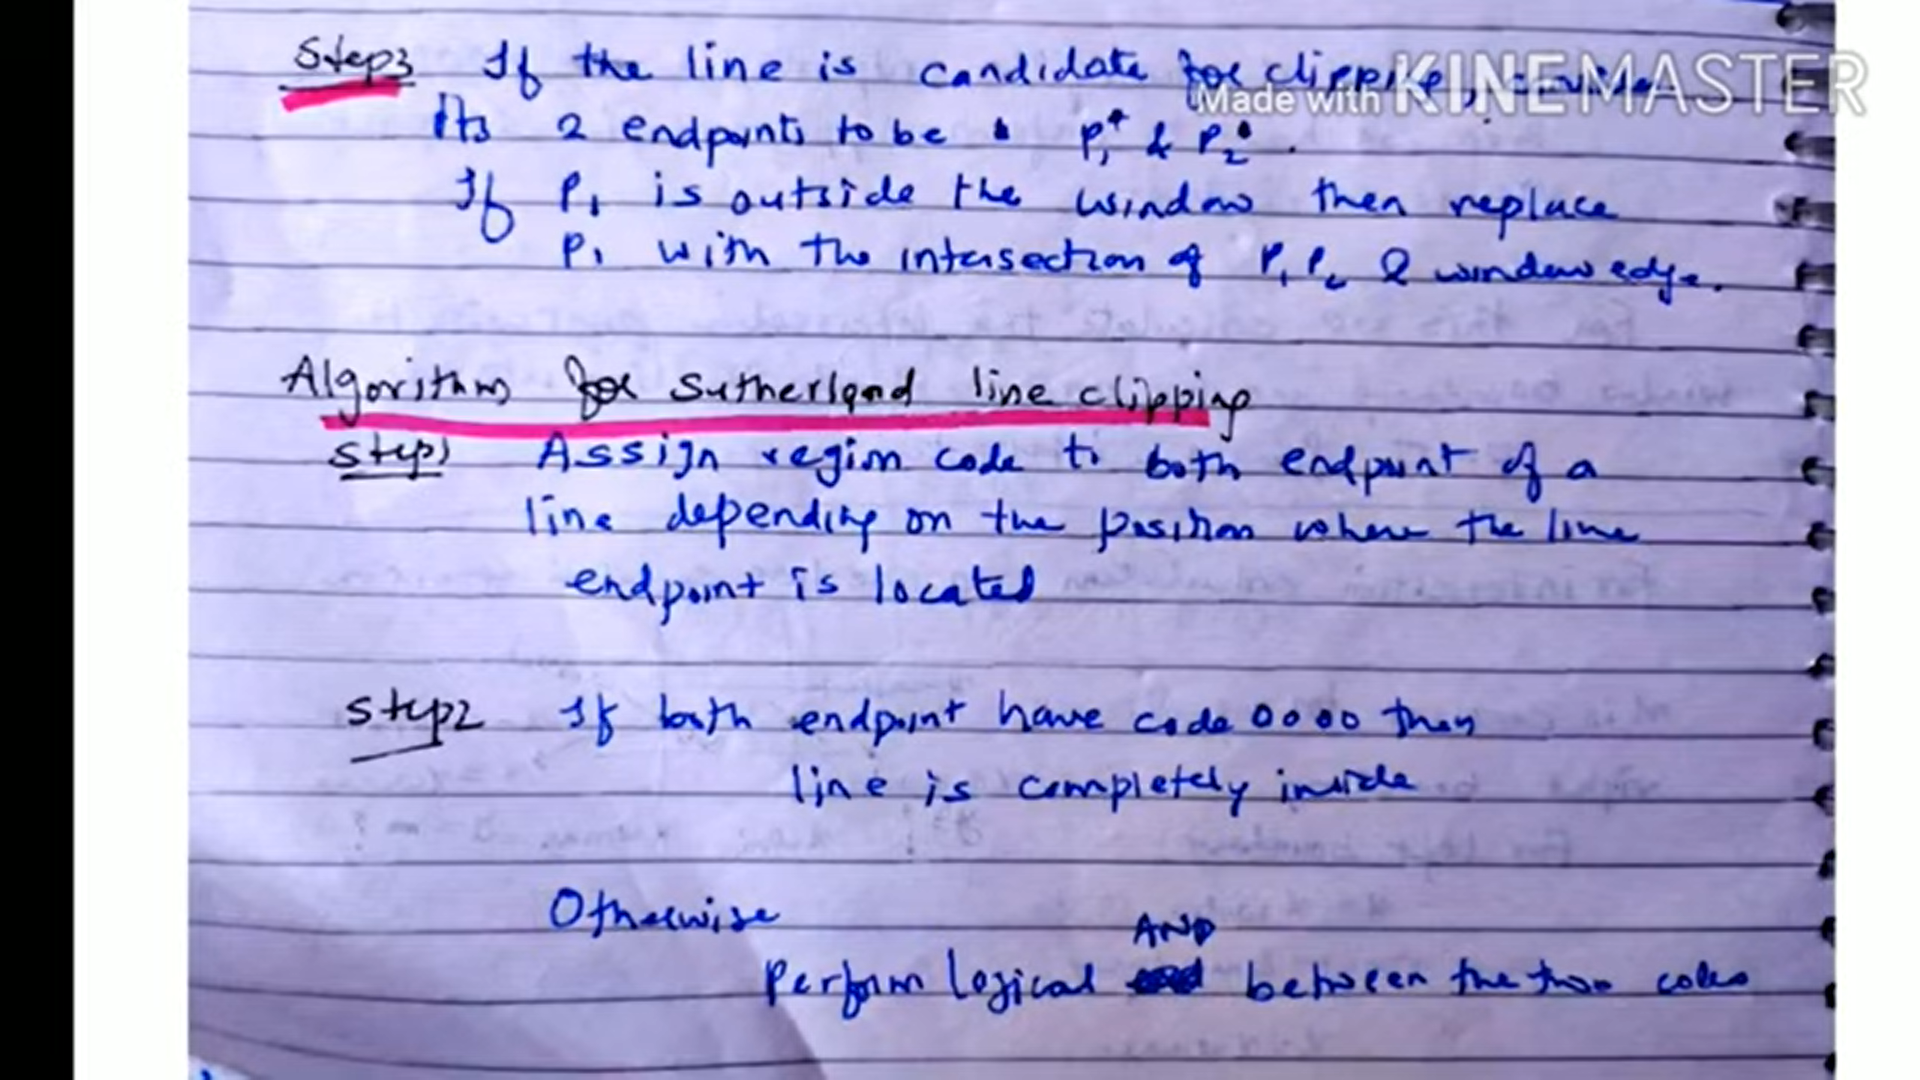 Step3 If the line is candidate for clipping,
Its 2 endpoints to be P1 & P2.
If P1 is outside the window then replace
P1 with the intersection of P1 P2 & window edge.
Made with KINEMASTER
Algorithm for Sutherland line clipping
Step1 Assign region code to both endpoint of a
line depending on the position where the line
endpoint is located
Step2 If both endpoint have code 0000 then
line is completely inside
Otherwise
AND
Perform logical between the two codes